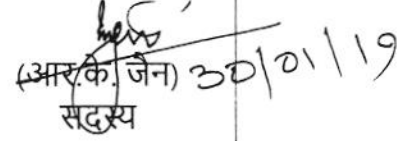 (आर.के. जैन) 30/01/19
सदस्य